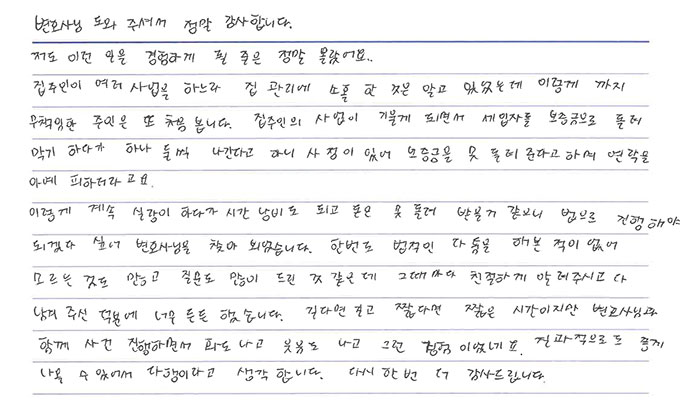 변호사님 도와 주셔서 정말 감사합니다.
저도 이런 일을 경험하게 될 줄은 정말 몰랐어요..
집주인이 여러 사업을 하느라 집 관리에 소홀 한 것은 알고 있었는데 이렇게 까지
무책임한 주인은 또 처음 봅니다. 집주인의 사업이 기울게 되면서 세입자들 보증금으로 돌려
막기 하다가 하나 둘씩 나간다고 하니 사정이 있어 보증금을 못 돌려 준다고 하며 연락을
아예 피하더라고요.
이렇게 계속 실랑이 하다가 시간 낭비도 되고 돈은 못 돌려 받을거 같으니 법으로 진행해야
되겠다 싶어 변호사님을 찾아 뵈었습니다. 한번도 법적인 다툼을 해본 적이 없어
모르는 것도 많고 질문도 많이 드린 것 같은데 그때마다 친절하게 알려주시고 다
남겨 주신 덕분에 너무 든든 했습니다. 길다면 길고 짧다면 짧은 시간이지만 변호사님과
함께 사건 진행하면서 화도 나고 웃음도 나고 그런 경험이었네요. 결과적으로도 좋게
나올 수 있어서 다행이라고 생각합니다. 다시 한번 더 감사드립니다.